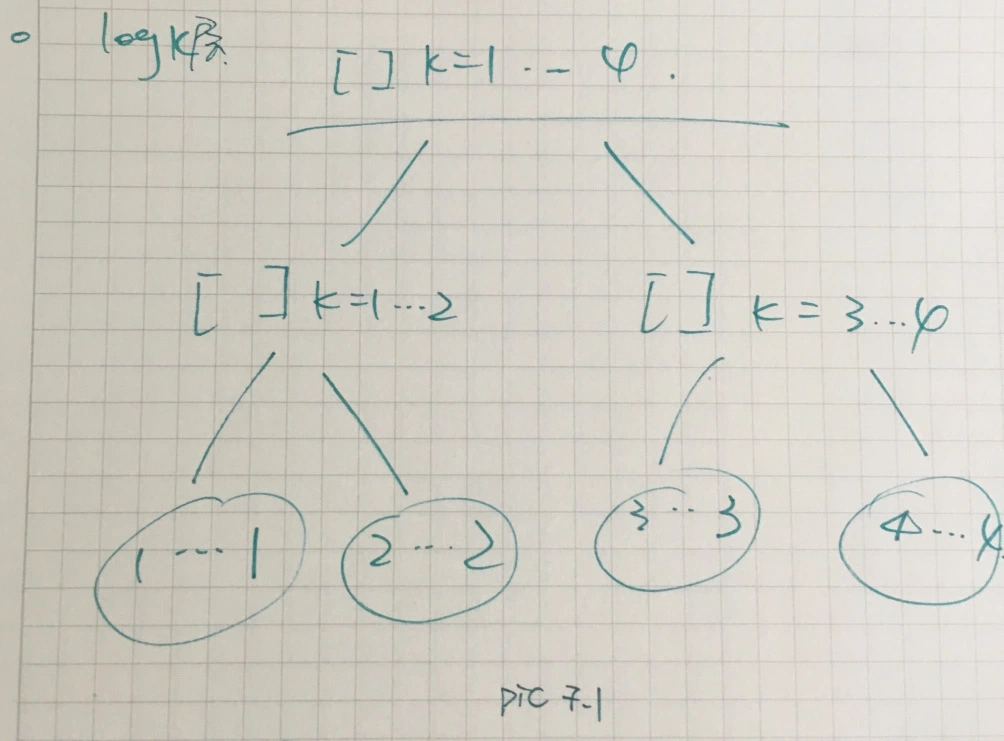 logk层
[ ] k=1 ... 4.
[ ] k=1...2
[ ] k=3...4
1 ... 1
2 ... 2
3 ... 3
4 ... 4
pic 7-1